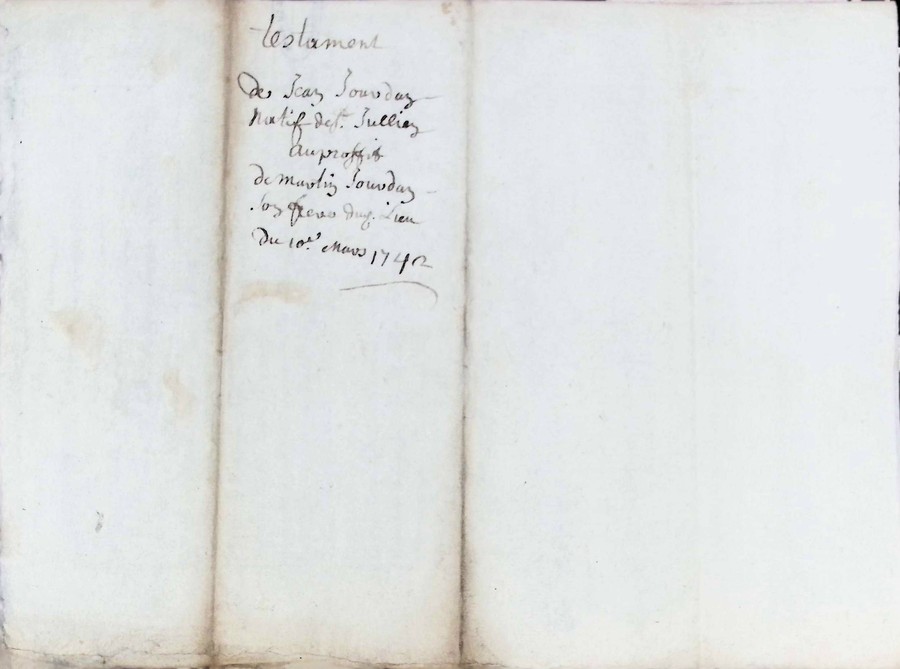 testament
De Jean Jourdan
Natif de St. Jullien
au proffit
de martin Jourdan
son frere dud. Lieu
Du 10e. Mars 1742